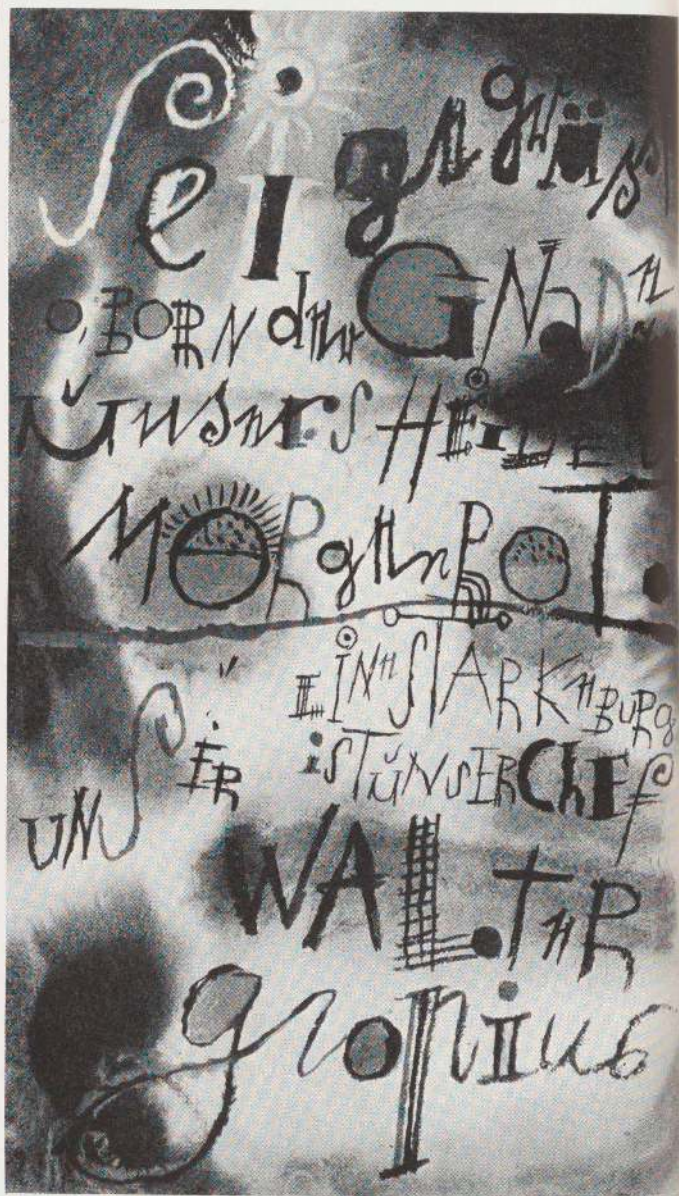 Sei gegrüss
o, BORN der GNADEN
UNSERES HEIDEN
MORgENROT.
EINE STARKE BURg
UNSER iST UNSER ChEf
WALTER
gropius